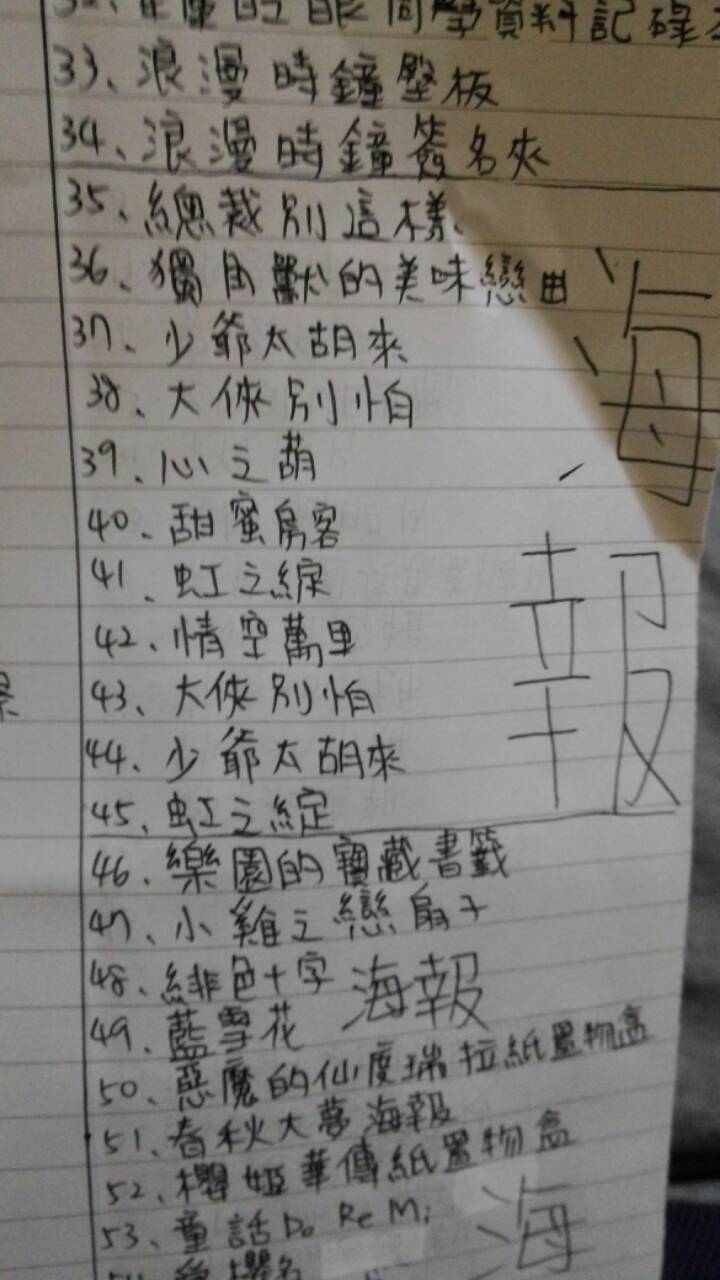 資料記碌
33、浪漫時鐘墊板
34、浪漫時鐘簽名夾
35、總裁別這樣
36、獨角獸的美味戀曲
37、少爺太胡來
38、大俠別怕
39、心之葫
40、甜蜜房客
41、虹之綻
42、情空萬里
43、大俠別怕
44、少爺太胡來
45、虹之綻
海報
46、樂園的寶藏書籤
47、小雞之戀扇子
48、緋色十字
49、藍雪花
海報
50、惡魔的仙度瑞拉紙置物盒
51、春秋大夢海報
52、櫻姬華傳紙置物盒
53、童話Do Re Mi
海